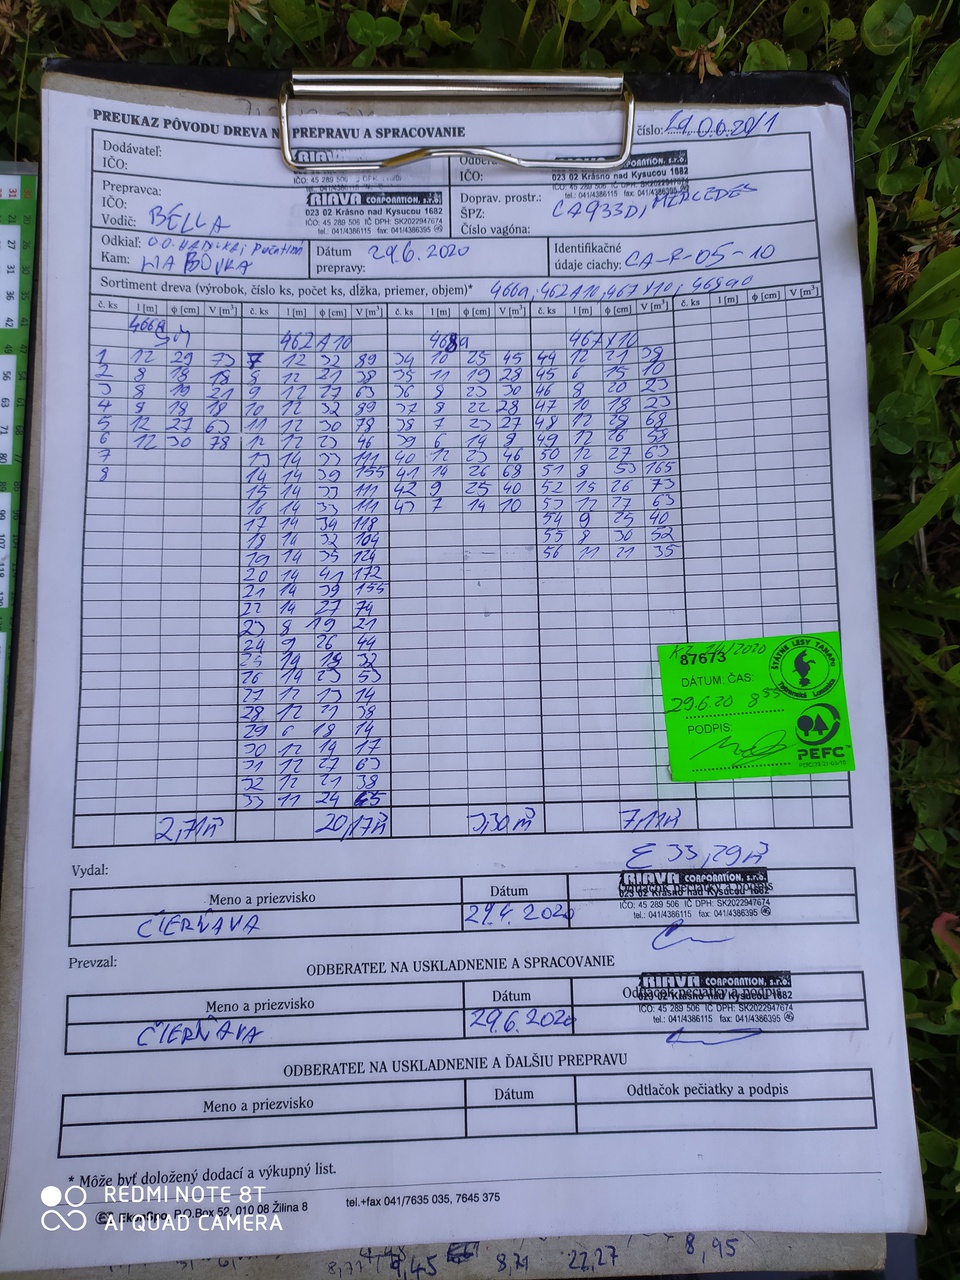 PREUKAZ PÔVODU DREVA NA PREPRAVU A SPRACOVANIE
číslo: 290620/1
Dodávateľ:
IČO:
RIAVA
IČO: 45 289 506
tel.: 041/4386115
IČO:
CORPORATION, s.r.o.
023 02 Krásno nad Kysucou 1682
IČO: 45 289 506 IČ DPH: SK2022947674
Prepravca:
IČO:
Vodič: BELLA
RIAVA CORPORATION, s.r.o.
023 02 Krásno nad Kysucou 1682
IČO: 45 289 506 IČ DPH: SK2022947674
tel.: 041/4386115 fax: 041/4386395
Doprav. prostr.:
ŠPZ: CA933DI, MERCEDES
Číslo vagóna:
Odkiaľ:
Kam: HABOVKA
Dátum
prepravy: 29.6.2020
Identifikačné
údaje ciachy: CA-R-05-10
Sortiment dreva (výrobok, číslo ks, počet ks, dĺžka, priemer, objem)* 466a, 462A10, 467X10, 468a0
č. ks l [m] ϕ [cm] V [m³] č. ks l [m] ϕ [cm] V [m³] č. ks l [m] ϕ [cm] V [m³] č. ks l [m] ϕ [cm] V [m³] č. ks l [m] ϕ [cm] V [m³]
466a
462A10 468a 467X10
1 12 29 73 7 12 32 89 34 10 25 45 44 12 21 38
2 8 18 18 8 12 21 38 35 11 19 28 45 6 15 10
3 8 19 21 9 12 27 63 36 8 23 30 46 8 20 23
4 8 18 18 10 12 32 89 37 8 22 28 47 10 18 23
5 12 27 63 11 12 30 78 38 7 23 27 48 12 28 68
6 12 30 78 12 12 23 46 39 6 14 8 49 12 26 58
7 13 14 33 111 40 12 23 46 50 12 27 63
8 14 14 39 155 41 14 26 68 51 8 53 165
15 14 33 111 42 9 25 40 52 15 26 73
16 14 33 111 43 7 14 10 53 12 27 63
17 14 34 118 54 9 25 40
18 14 32 104 55 8 30 52
19 14 35 124 56 11 21 35
20 14 41 172
21 14 39 155
22 14 27 74
23 8 19 21
24 9 26 44
25 14 18 32
26 14 23 53
27 12 13 14
28 12 21 38
29 6 18 14
30 12 14 17
31 12 27 63
32 12 21 38
33 11 24 45
2,71m³ 20,17m³ 3,30m³ 7,11m³
Σ 33,29m³
87673
ŠTÁTNE LESY TANAPU
Tatranská Lomnica
DÁTUM, ČAS:
29.6.20 8 55
PODPIS:
PEFC
Vydal:
Meno a priezvisko Dátum Odtlačok pečiatky a podpis
RIAVA CORPORATION, s.r.o.
023 02 Krásno nad Kysucou 1682
IČO: 45 289 506 IČ DPH: SK2022947674
tel.: 041/4386115 fax: 041/4386395
ČIERŇAVA 29.6.2020
Prevzal:
ODBERATEĽ NA USKLADNENIE A SPRACOVANIE
Meno a priezvisko Dátum Odtlačok pečiatky a podpis
RIAVA CORPORATION, s.r.o.
023 02 Krásno nad Kysucou 1682
IČO: 45 289 506 IČ DPH: SK2022947674
tel.: 041/4386115 fax: 041/4386395
ČIERŇAVA 29.6.2020
ODBERATEĽ NA USKLADNENIE A ĎALŠIU PREPRAVU
Meno a priezvisko Dátum Odtlačok pečiatky a podpis
* Môže byť doložený dodací a výkupný list.
P.O.Box 52, 010 08 Žilina 8 tel.+fax 041/7635 035, 7645 375
REDMI NOTE 8T
AI QUAD CAMERA
9,45 8,71 22,27 8,95